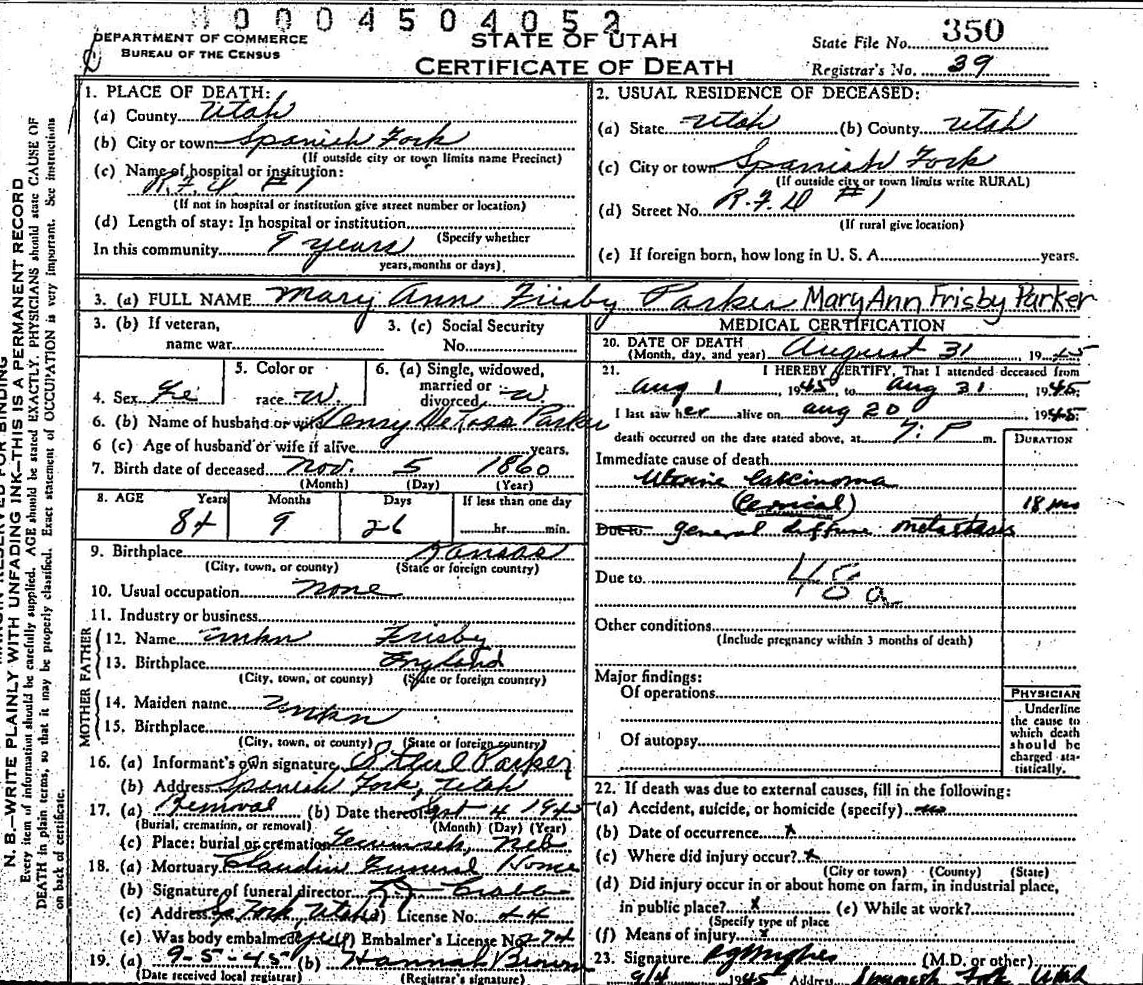 0004504052
DEPARTMENT OF COMMERCE
BUREAU OF THE CENSUS
STATE OF UTAH
CERTIFICATE OF DEATH
State File No. 350
Registrar's No. 39
1. PLACE OF DEATH:
(a) County Utah
(b) City or town Spanish Fork
(If outside city or town limits name Precinct)
(c) Name of hospital or institution:
R.F.D #1
(If not in hospital or institution give street number or location)
(d) Length of stay: In hospital or institution
(Specify whether
In this community 9 years
years, months or days)
2. USUAL RESIDENCE OF DECEASED:
(a) State Utah (b) County Utah
(c) City or town Spanish Fork
(If outside city or town limits write RURAL)
(d) Street No. R.F.D #1
(If rural give location)
(e) If foreign born, how long in U. S. A. years.
3. (a) FULL NAME Mary Ann Frisby Parker Mary Ann Frisby Parker
3. (b) If veteran,
name war
3. (c) Social Security
No.
4. Sex Fe
5. Color or
race W.
6. (a) Single, widowed,
married or
divorced W
6. (b) Name of husband or wife Henry DeLoss Parker
6 (c) Age of husband or wife if alive years.
7. Birth date of deceased Nov. 5 1860
(Month) (Day) (Year)
8. AGE Years Months Days If less than one day
84 9 26 hr. min.
9. Birthplace Kansas
(City, town, or county) (State or foreign country)
10. Usual occupation none
11. Industry or business
FATHER
12. Name unkn Frisby
13. Birthplace England
(City, town, or county) (State or foreign country)
MOTHER
14. Maiden name unkn
15. Birthplace
(City, town, or county) (State or foreign country)
16. (a) Informant's own signature Parker
(b) Address Spanish Fork, Utah
17. (a) Removal (b) Date thereof Sept 4 1945
(Burial, cremation, or removal) (Month) (Day) (Year)
(c) Place: burial or cremation Tecumseh, Neb
18. (a) Mortuary Claudin Funeral Home
(b) Signature of funeral director
(c) Address Sp Fork, Utah (d) License No. 44
(e) Was body embalmed yes (f) Embalmer's License No. 274
19. (a) 9-5-45 (b) Hannah Brown
(Date received local registrar) (Registrar's signature)
MEDICAL CERTIFICATION
20. DATE OF DEATH
(Month, day, and year) August 31 1945
21. I HEREBY CERTIFY, That I attended deceased from
Aug 1 1945, to Aug 31 1945.
I last saw her alive on Aug 20 1945.
death occurred on the date stated above, at 7: P m.
DURATION
Immediate cause of death
Uterine Carcinoma
(Cervical) 18 mo
Due to general diffuse metastases
Due to 48a
Other conditions
(Include pregnancy within 3 months of death)
Major findings:
Of operations
Of autopsy
PHYSICIAN
Underline
the cause to
which death
should be
charged sta-
tistically.
22. If death was due to external causes, fill in the following:
(a) Accident, suicide, or homicide (specify) no
(b) Date of occurrence x
(c) Where did injury occur? x
(City or town) (County) (State)
(d) Did injury occur in or about home on farm, in industrial place,
in public place? x (e) While at work?
(Specify type of place
(f) Means of injury x
23. Signature Hughes (M.D. or other)
9/4 1945 Address Spanish Fork Utah
MARGIN RESERVED FOR BINDING
N. B.—WRITE PLAINLY WITH UNFADING INK—THIS IS A PERMANENT RECORD
Every item of information should be carefully supplied. AGE should be stated EXACTLY. PHYSICIANS should state CAUSE OF
DEATH in plain terms, so that it may be properly classified. Exact statement of OCCUPATION is very important. See instructions
on back of certificate.